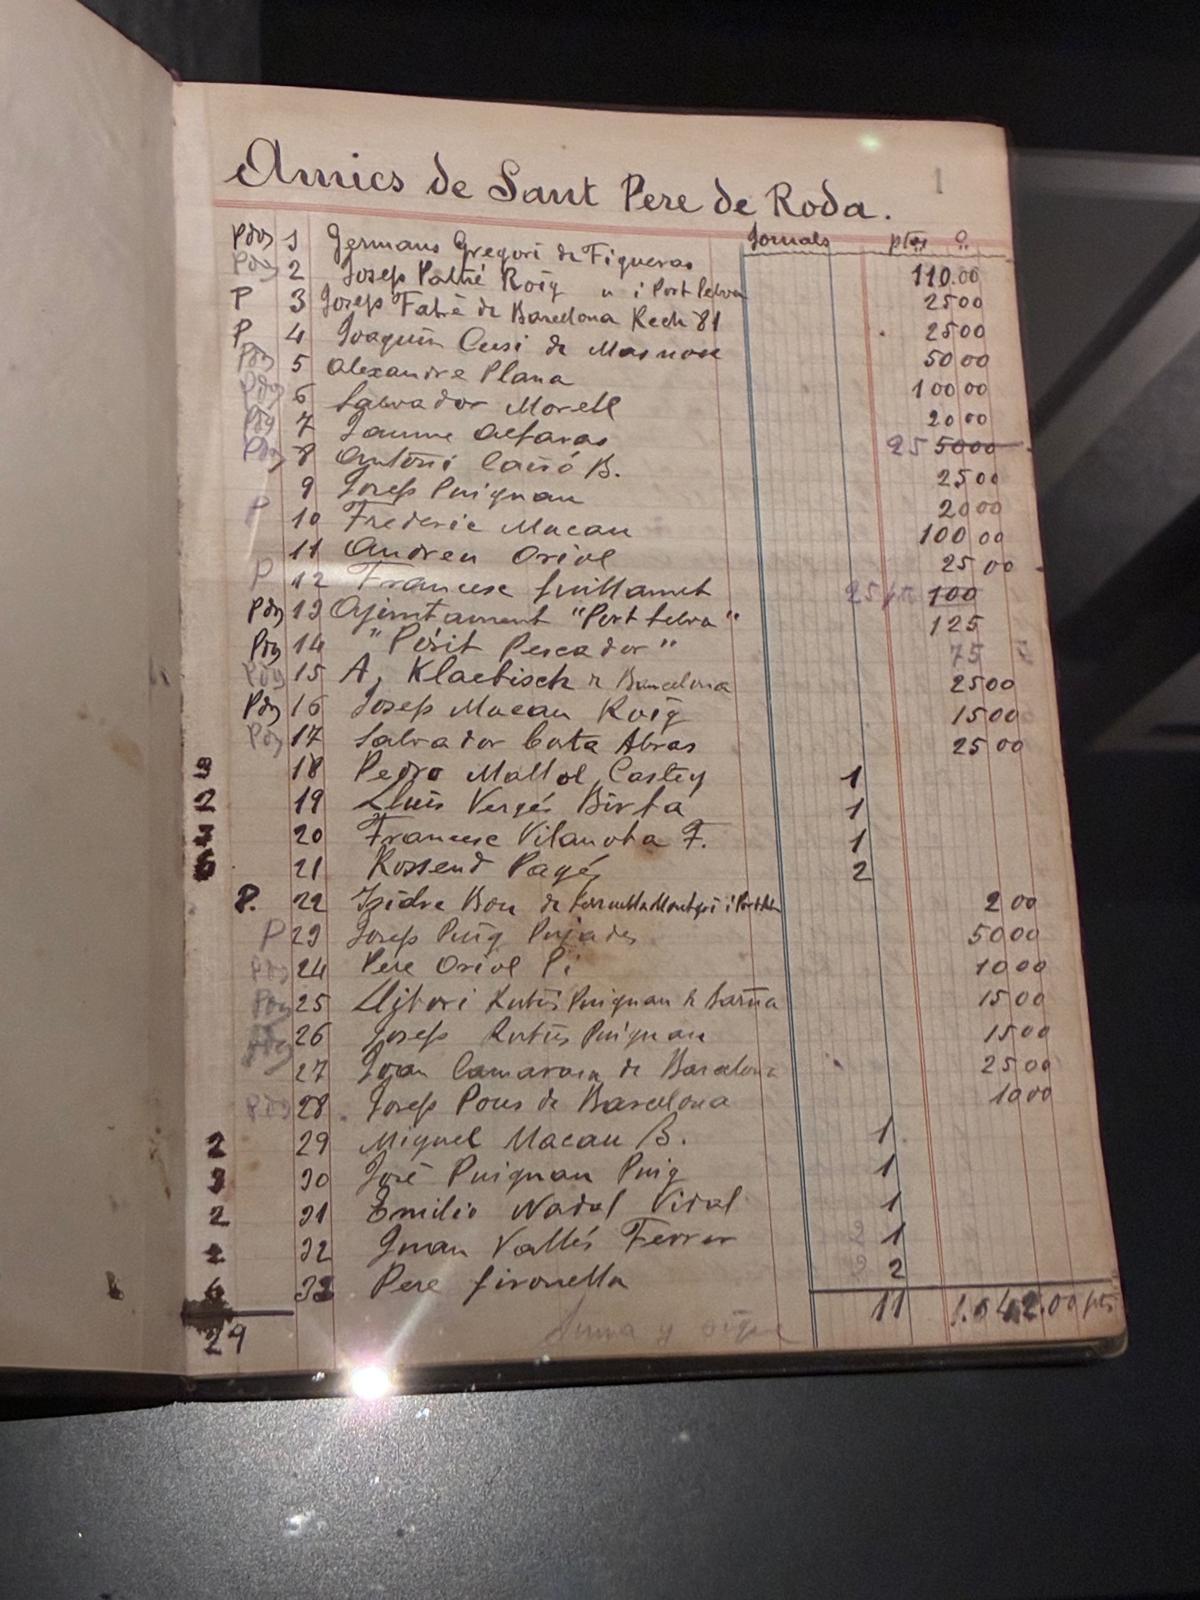 1
Amics de Sant Pere de Roda.
Jornals ptes
Pdg 1 Germans Gregori de Figueras 110.00
Pdg 2 Josep Pallré Roig " i Port Selva 25 00
P 3 Josep Fabré de Barcelona Rech 81 25 00
P 4 Joaquim Cusi de Masnou 50 00
Pdg 5 Alexandre Plana 100 00
Pdg 6 Salvador Morell 20 00
Pdg 7 Jaume 25 5000
Pdg 8 Antoni B. 25 00
9 Josep Puignau 20 00
P 10 Frederic Macau 100 00
11 Andreu Oriol 25 00
P 12 Francesc Guillamet 25 pts 100
Pdg 13 Ajuntament "Port Selva" 125
Pdg 14 "Pòsit Pescador" 75
Pdg 15 A. Klaebisch Barcelona 25 00
Pdg 16 Josep Macau Roig 15 00
Pdg 17 Salvador Cota Abras 25 00
3 18 Pedro Mallol Castey 1
2 19 Lluis Vergés Birba 1
3 20 Francesc Vilanova F. 1
6 21 Rossend Pagés 2
P. 22 Izidre Bou de 2 00
P 23 Josep Puig Pujades 50 00
Pdg 24 Pere Oriol Pi 10 00
Pdg 25 Puignau 15 00
Pdg 26 Josep Puignau 15 00
27 Joan Camarasa de Barcelona 25 00
Pdg 28 Josep Pous de Barcelona 10 00
2 29 Miquel Macau B. 1
3 30 José Puignau Puig 1
2 31 Emilio Nadal Vidal 1
2 32 Juan Vallés Ferrer 2 1
6 33 Pere Gironella 2
29 Suma y sigue 11 1.042.00 pts